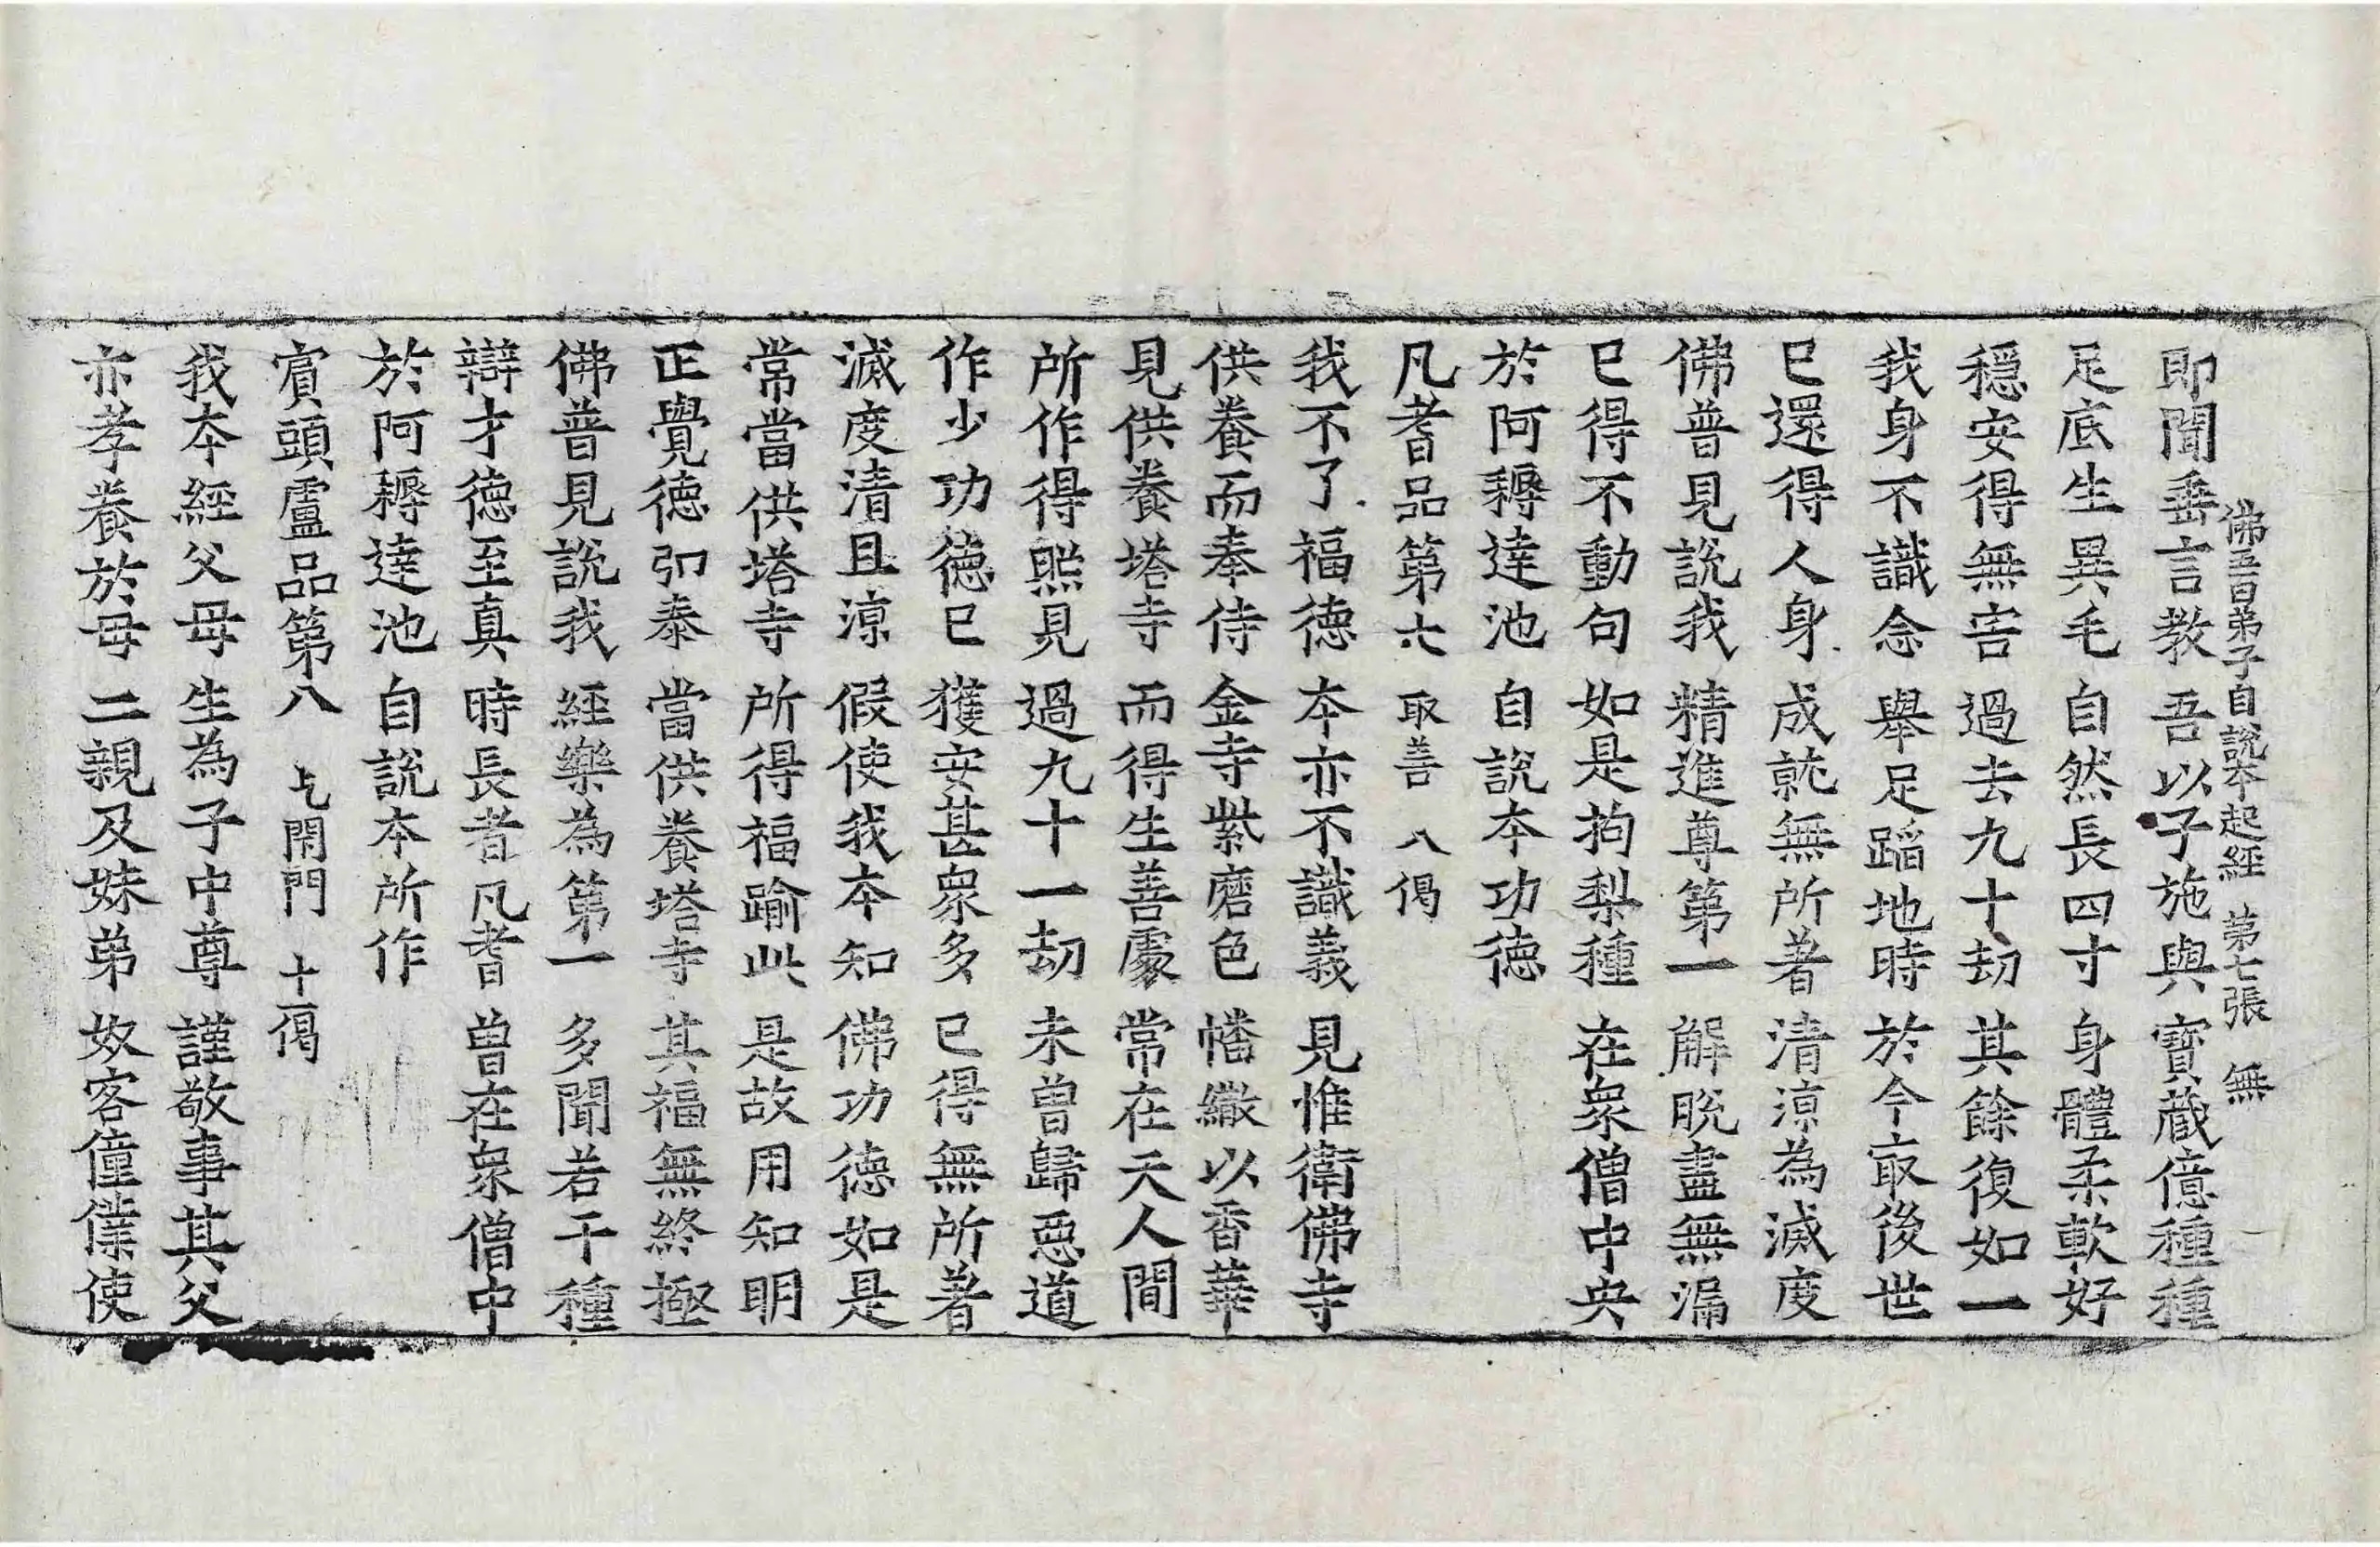 佛五百弟子自說本起經 第七張 無
即聞垂言教 吾以子施與 寶蔵億種種
足底生異毛 自然長四寸 身體柔軟好
穩安得無害 過去九十劫 其餘復如一
我身不識念 舉足蹈地時 於今㝡後世
已還得人身 成就無所著 清涼為滅度
佛普見說我 精進尊第一 解脫盡無漏
已得不動句 如是拘梨種 在衆僧中央
於阿耨達池 自說本功德
凡耆品第六 取善 八偈
我不了福德 本亦不識義 見惟衛佛寺
供養而奉侍 金寺紫磨色 幡繖以香華
見供養塔寺 而得生善處 常在天人間
所作得照見 過九十一劫 未曾歸惡道
作少功德已 獲安甚衆多 已得無所著
滅度清且涼 假使我本知 佛功德如是
常當供塔寺 所得福踰此 是故用知明
正覺德卬泰 當供養塔寺 其福無終極
佛普見說我 經樂為第一 多聞若干種
辯才德至真 時長者凡耆 曾在衆僧中
於阿耨達池 自說本所作
賔頭盧品第八 乞閇門 十一偈
我本經父母 生為子中尊 謹敬事其父
亦孝養於母 二親及妹弟 奴客僮僕使